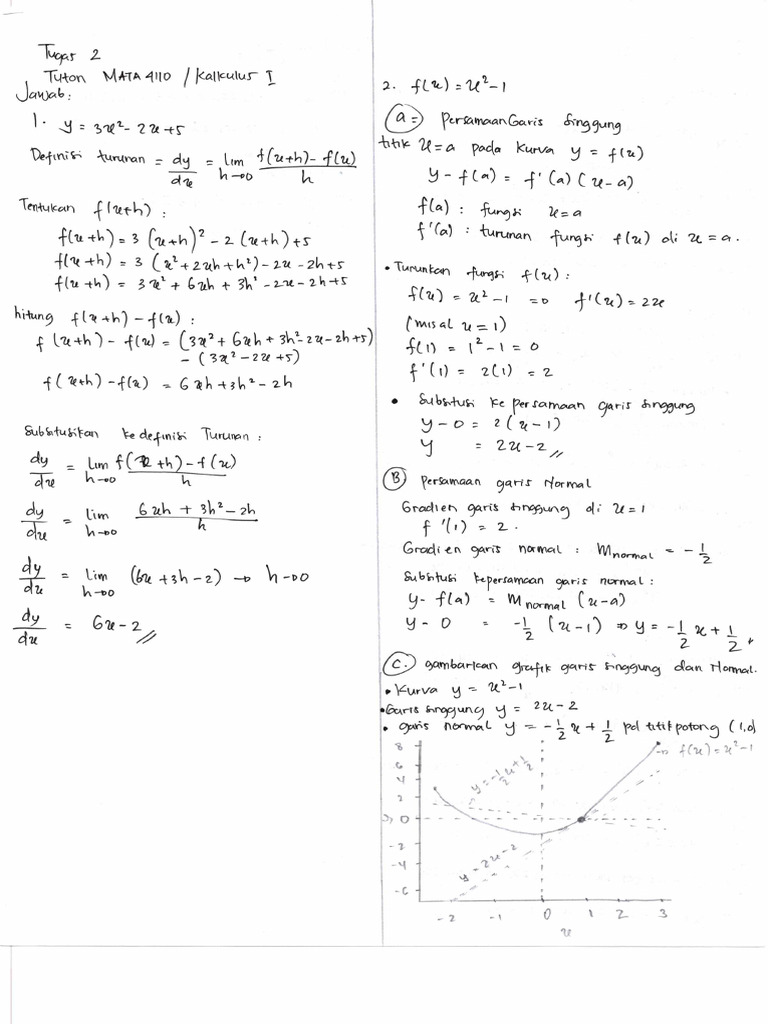 Tugas 2
Tuton MATA 4110 / Kalkulus I
Jawab:
1. y = 3x² - 2x + 5
Definisi turunan = dy/dx = lim h→0 f(x+h) - f(x) / h
Tentukan f(x+h) :
f(x+h) = 3 (x+h)² - 2 (x+h) + 5
f(x+h) = 3 (x² + 2xh + h²) - 2x - 2h + 5
f(x+h) = 3x² + 6xh + 3h² - 2x - 2h + 5
hitung f(x+h) - f(x) :
f (x+h) - f(x) = (3x² + 6xh + 3h² - 2x - 2h + 5)
- (3x² - 2x + 5)
f(x+h) - f(x) = 6xh + 3h² - 2h
Subsitusikan ke definisi Turunan :
dy/dx = lim h→0 f(x+h) - f(x) / h
dy/dx = lim h→0 6xh + 3h² - 2h / h
dy/dx = lim h→0 (6x + 3h - 2) → h→0
dy/dx = 6x - 2 //
2. f(x) = x² - 1
a = Persamaan Garis Singgung
titik x = a pada kurva y = f(x)
y - f(a) = f'(a) (x - a)
f(a) : fungsi x = a
f'(a) : turunan fungsi f(x) di x = a.
• Turunkan fungsi f(x) :
f(x) = x² - 1 ⇒ f'(x) = 2x
(misal x = 1)
f(1) = 1² - 1 = 0
f'(1) = 2(1) = 2
• Subsitusi ke persamaan garis singgung
y - 0 = 2(x - 1)
y = 2x - 2 //
B Persamaan garis Normal
Gradien garis singgung di x = 1
f'(1) = 2.
Gradien garis normal : Mnormal = - 1/2
Subsitusi kepersamaan garis normal :
y - f(a) = Mnormal (x - a)
y - 0 = -1/2 (x - 1) ⇒ y = -1/2 x + 1/2 //
C. gambarkan grafik garis singgung dan Normal.
• Kurva y = x² - 1
• Garis singgung y = 2x - 2
• garis normal y = - 1/2 x + 1/2 pd titik potong (1,0)
→ f(x) = x² - 1
y = -1/2 x + 1/2
y = 2x - 2
8
6
4
2
0
-2
-4
-6
-2 -1 0 1 2 3
x